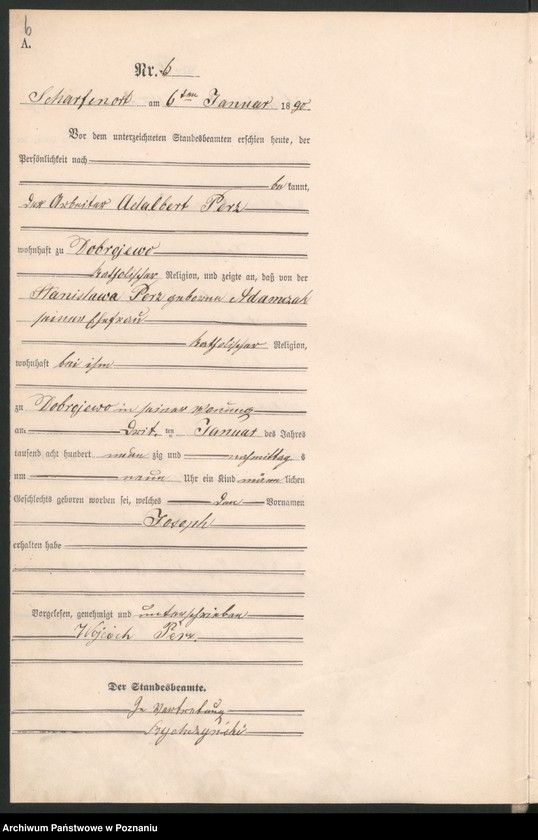 6
A.
Nr. 6
Scharfenort am 6ten Januar 1890
Vor dem unterzeichneten Standesbeamten erschien heute, der
Persönlichkeit nach
bekannt,
der Arbeiter Adalbert Perz
wohnhaft zu Dobrojewo
katholischer Religion, und zeigte an, daß von der
Stanislawa Perz geborene Adamczak
seiner Ehefrau
katholischer Religion,
wohnhaft bei ihm
zu Dobrojewo in seiner Wonung
am Drit. ten Januar des Jahres
tausend acht hundert neun zig und nachmittag s
um neun Uhr ein Kind männlichen
Geschlechts geboren worden sei, welches den Vornamen
Joseph
erhalten habe
Vorgelesen, genehmigt und unterschrieben
Wojciech Perz.
Der Standesbeamte.
In Vertretung
Archiwum Państwowe w Poznaniu